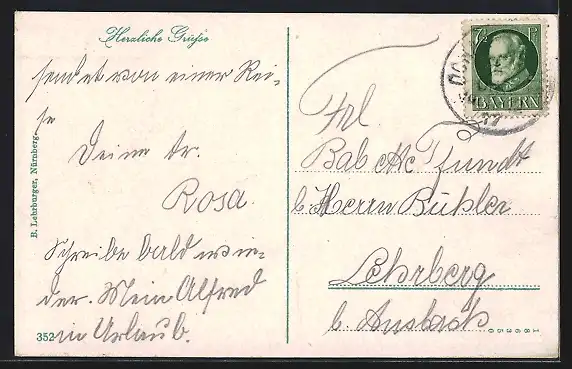 Herzliche Grüße
sendet von einer Rei-
se
Deine tr.
Rosa.
Schreibe bald wie-
der. Mein Alfred
in Urlaub.
B. Lehrburger, Nürnberg.
352
7½ Pf
BAYERN
Frl.
Babette Pfundt
b. Herrn Bühler
Lehrberg
b. Ansbach